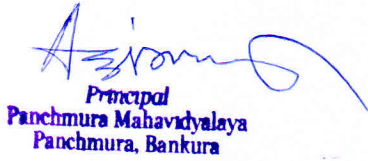 Principal
Panchmura Mahavidyalaya
Panchmura, Bankura